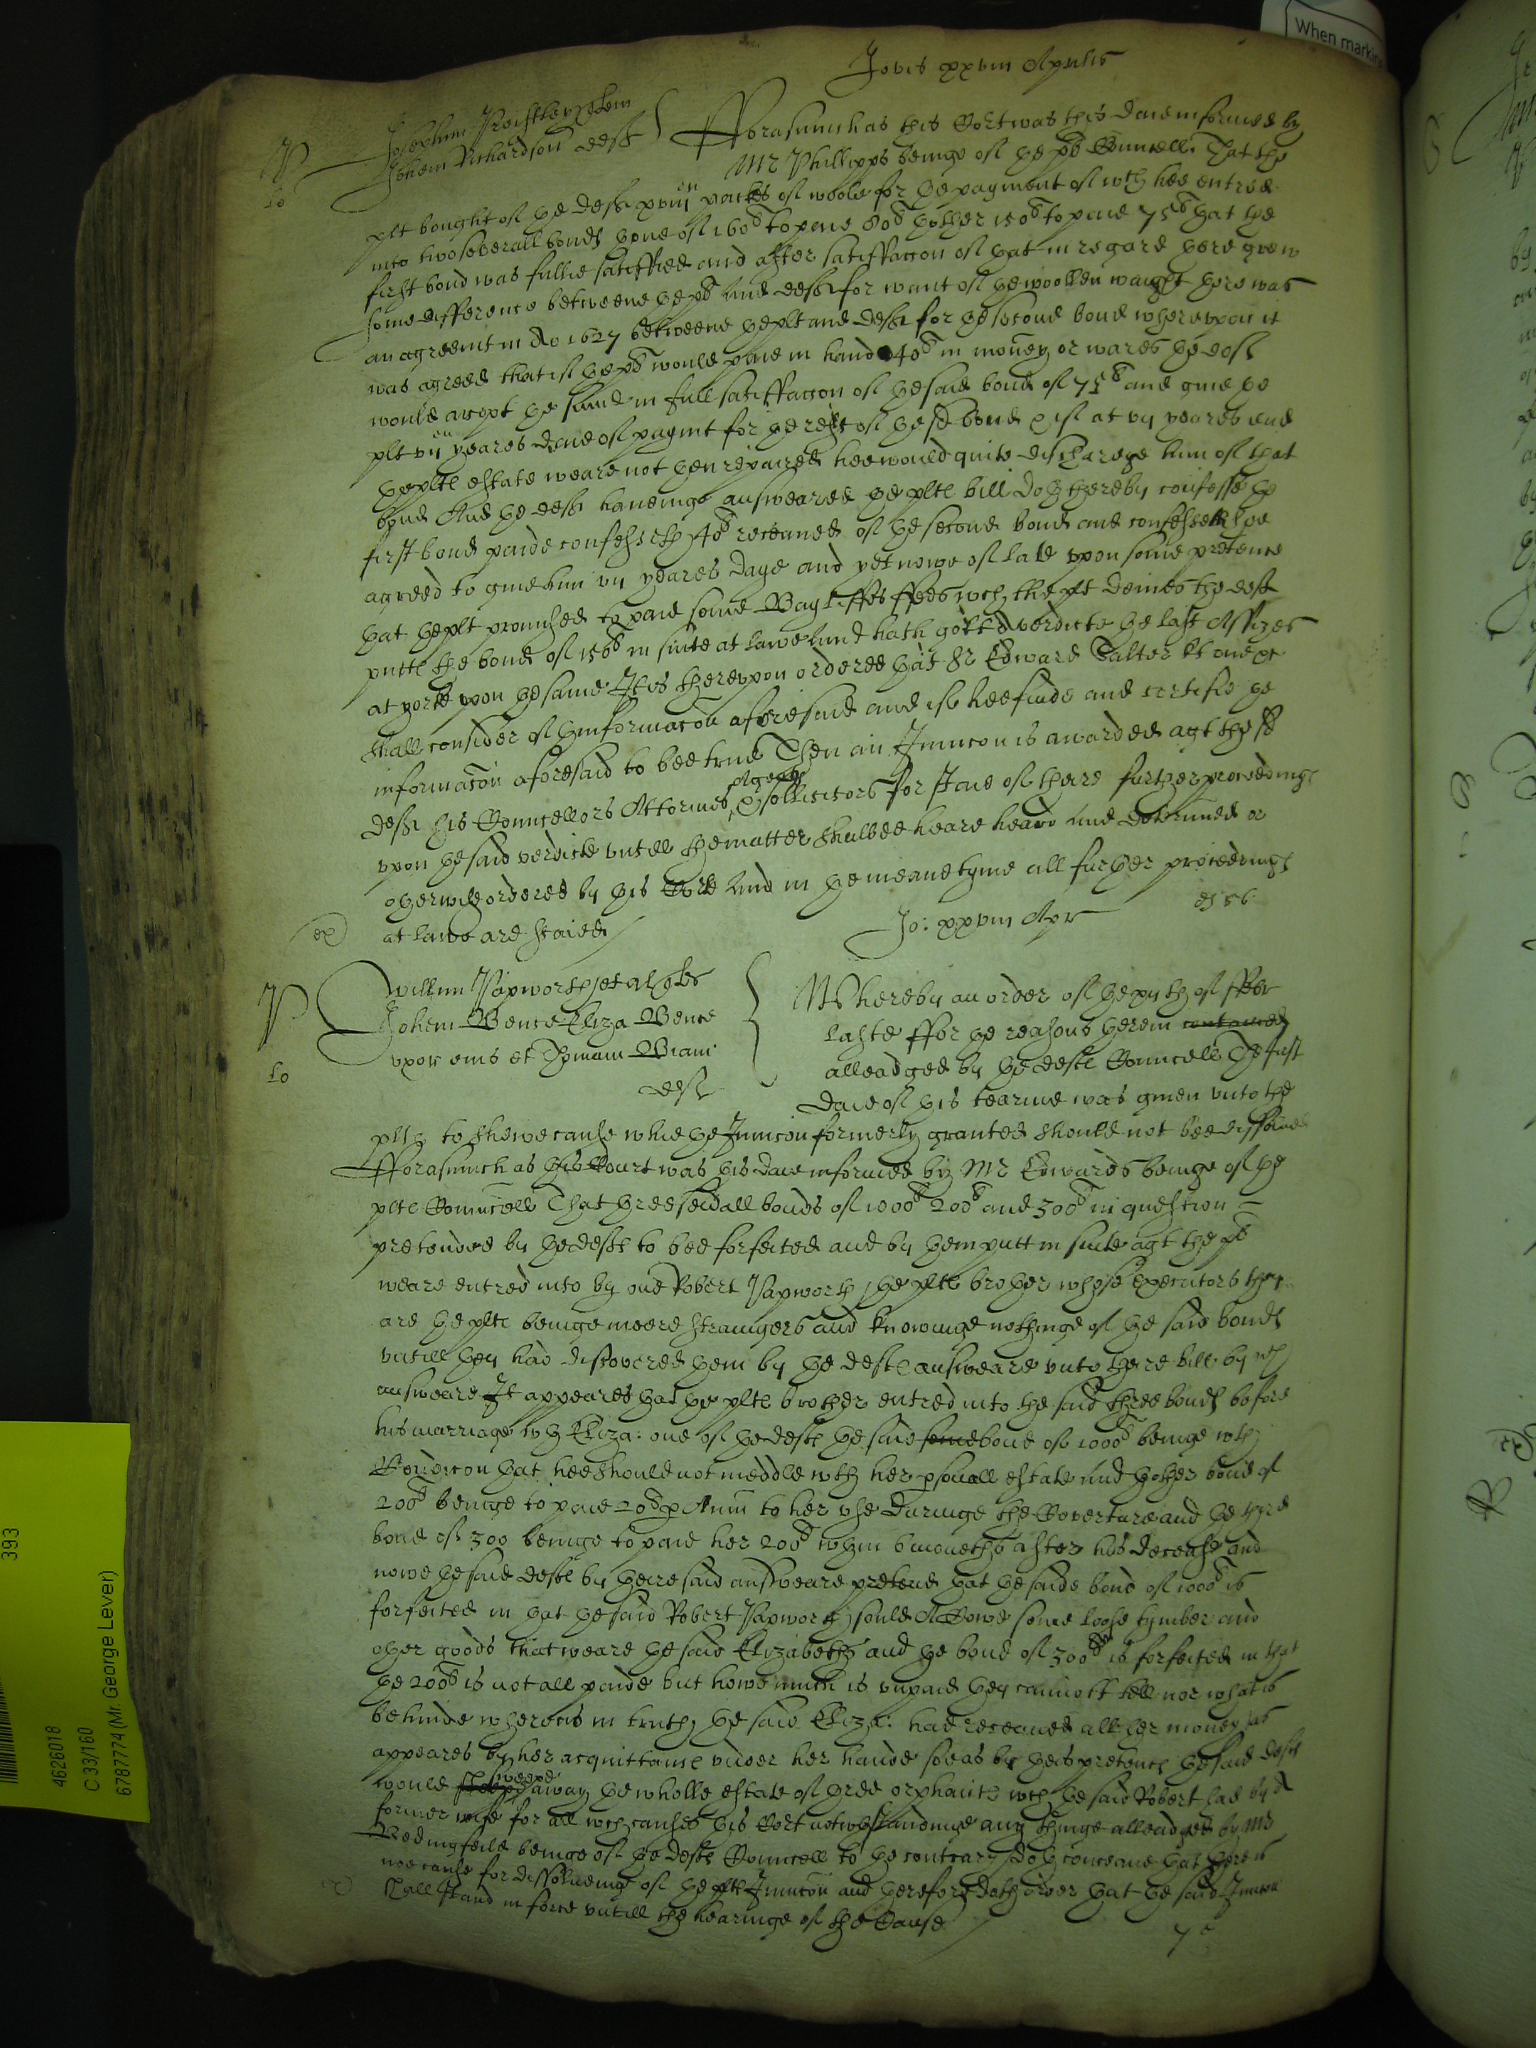 When marking
Jovis xxviii Aprilis
P
Josephum Priestley quer
Johem Richardson deft
Lo
Fforasmuch as this Cort was this daie informed by
Mr Phillipps beinge of ye pts Councell That the
plt bought of ye deft xviii en packes of woole for ye payment of wch hee entred
into two severall bonds yone of 160l to paie 80l yother 150l to paie 75l yat the
first bond was fullie satisfied and after satisfaccon of yat in regard yere grew
some difference betweene ye pt and deft for want of ye woollen waight yere was
an agreemt in Ao 1627 betweene ye plt and deft for ye second bond wherevpon it
was agreed that if ye pt would paie in hand 40l in money or wares ye deft
would accept ye same in full satisfaccon of ye said bond of 75l and giue ye
plt vij en yeares daie of paymt for ye rest of ye sd bond & if at vij yeares end
ye plts estate weare not yen repaired hee would quite discharge him of that
bond And ye deft haueinge answeared ye plts bill doth thereby confesse ye
first bond paide confesseth 40l receaued of ye second bond and confesseth hee
agreed to giue him vij yeares daye and yet nowe of late vpon some pretence
yat ye plt promised to paie some Bayliffes ffees wch the plt denies the deft
putts the bond of 150l in suite at lawe and hath gott a verdicte ye last Assizes
at yorke vpon ye same It is therevpon ordered yat Sr Edward Salter kt one &c
shall consider of yinformacon aforesaid and if hee finde and certifie ye
informacon aforesaid to bee true Then an Iniunccon is awarded agt the sd
deft his Councellors Attornies Agents & Sollicitors for staie of there further proceedings
vpon ye said verdicte vntill the matter shalbee heare heard and determined or
otherwise ordered by this Corte And in ye meane tyme all further proceedings
ex
at lawe are staied
Jo: xxviii Apr
P
Willim Papworth et al quer
Johem Bence Eliza Bence
vxor eius et Thomam
deft
Lo
Whereby an order of ye of ffebr
laste ffor ye reasons herein contained
alleadged by ye defts Councell The first
daie of this tearme was giuen vnto the
plts to shewe cause whie ye Iniunccon formerly granted should not bee dissolued
Fforasmuch as this Court was this daie informed by Mr Edwards beinge of ye
plts Councell That three seuerall bonds of 1000l 200l and 300l in question
pretended by ye defts to bee forfeited and by them putt in suite agt the pts
weare entred into by one Robert Papworth ye plts brother whose Executors they
are ye plts beinge meere straungers and knowinge nothinge of ye said bonds
vntill they had discovered them by ye defts answeare vnto there bill by wch
answeare It appeares yat ye plts brother entred into the said three bonds before
his marriage wth Eliza: one of ye defts ye said some bond of 1000l beinge wth
Condicon yat hee should not meddle wth her psonall estate and yother bond of
200l beinge to paie 20l p Anm to her vse duringe the Coverture and ye third
bond of 300 beinge to paie her 200l wthin 6 moneths after his decease and
nowe ye said defts by there said answeare pretend yat ye saide bond of 1000l is
forfeited in yat ye said Robert Papworth sould Allowe some loose tymber and
other goods that weare ye said Elizabeths and ye bond of 300l is forfeited in that
ye 200l is not all paide but howe much is vnpaid they cannott tell nor what is
behinde whereas in truth ye said Eliza: had receaued all her money as
appeares by her acquittance vnder her hande soe as by this pretence ye said defts
would sweepe away ye wholle estate of three orphants wch ye said Robert had by a
former wife for all wch causes this Cort notwthstandinge any thinge alleadged by Mr
Bedingfeild beinge of ye defts Councell to ye contrary doth conceaue yat there is
noe cause for dissolueinge of ye plts Iniunccon and therefore doth order yat ye said Iniunccon
ex
shall stand in force vntill the hearinge of the Cause
393
4626018
C 33/160
6787774 (Mr. George Lever)